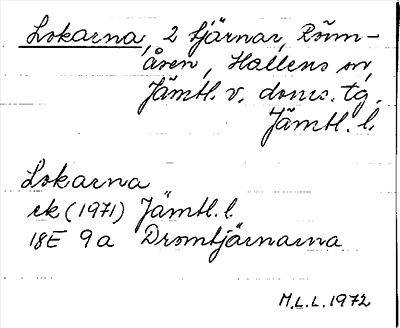 Lokarna, 2 tjärnar, Röm-
åren, Hallens sn,
Jämtl. v. doms. tg,
Jämtl. l.
Lokarna
rk (1971) Jämtl. l.
18E 9a Dromtjärnarna
M.L.L. 1972